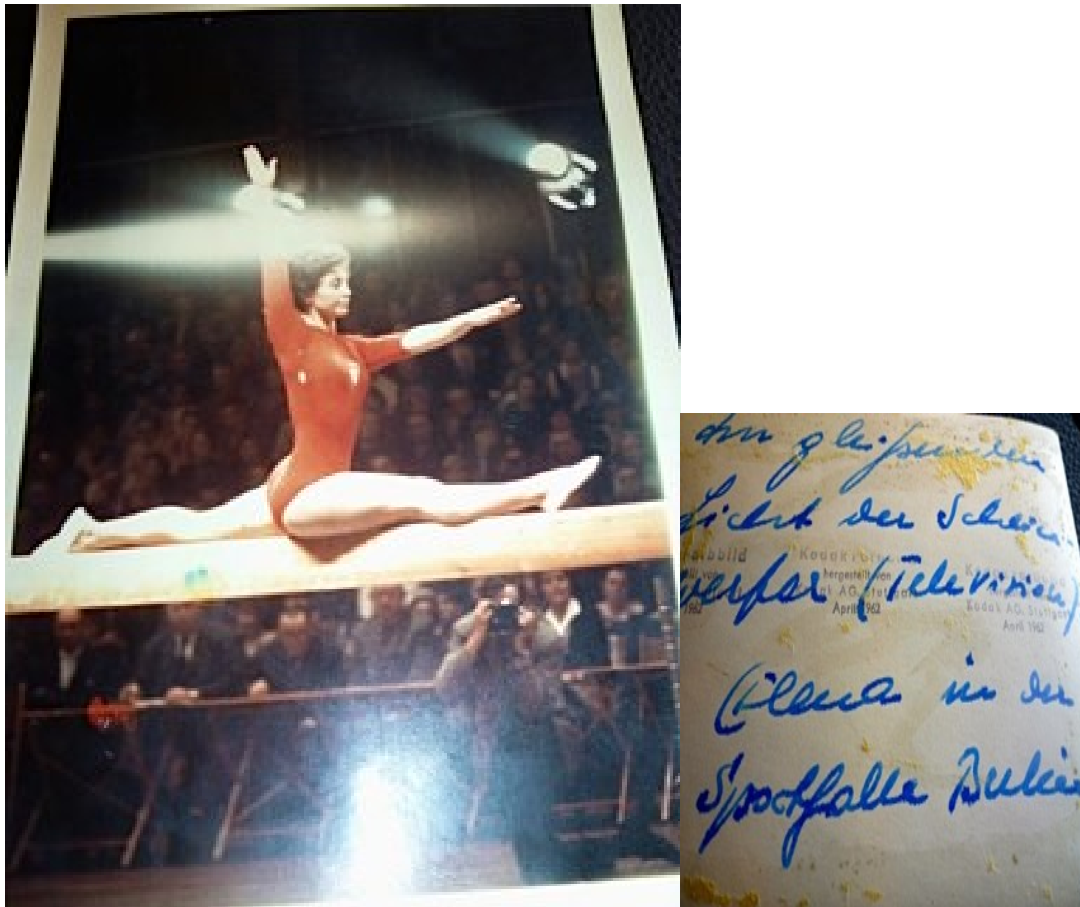 gleißenden
Licht der Schein-
werfer (Television)
(Ilena in der
Sporthalle
Kodak
hergestellt von
AG. Stuttgart
April 1962
Kodak AG. Stuttgart
April 1962